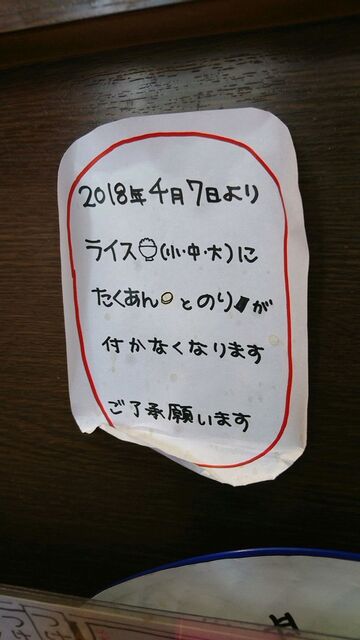 2018年4月7日より
ライス(小・中・大)に
たくあんとのりが
付かなくなります
ご了承願います
つけ
つけ